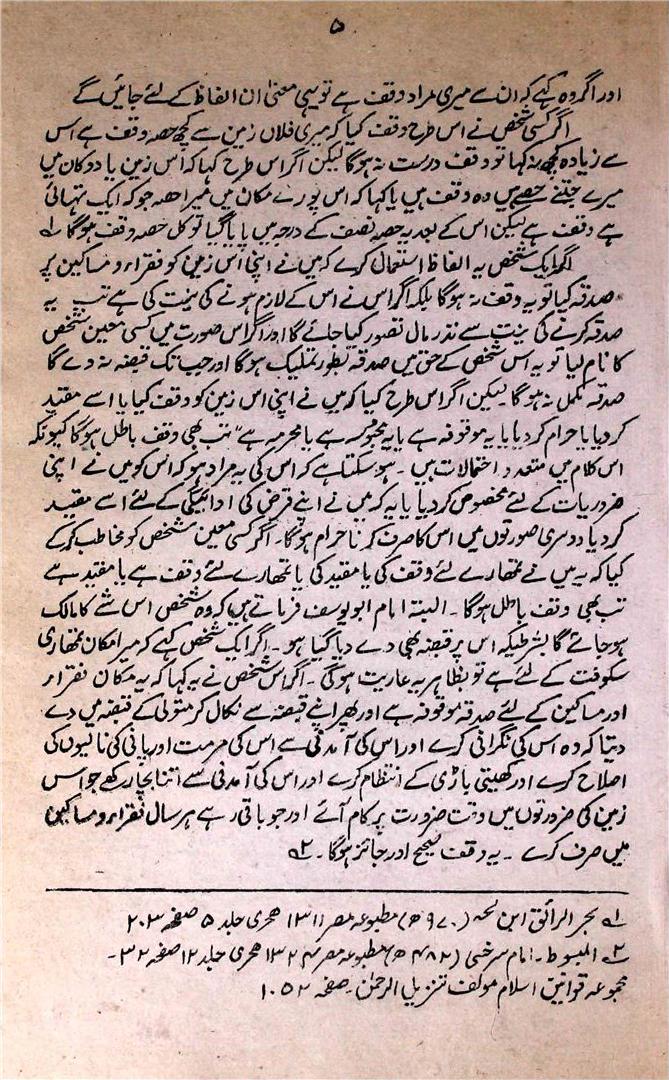 ۵
اور اگر وہ کہے کہ ان سے میری مراد وقف ہے تو یہی معنیٰ ان الفاظ کے لئے جائیں گے
اگر کسی شخص نے اس طرح وقف کیا کہ میری فلاں زمین سے کچھ حصہ وقف ہے اس
سے زیادہ کچھ نہ کہا تو وقف درست نہ ہوگا لیکن اگر اس طرح کہا کہ اس زمین یا دوکان میں
میرے جتنے حصے ہیں وہ وقف ہیں یا کہا کہ اس پورے مکان میں میرا حصہ جو کہ ایک تہائی
ہے وقف ہے لیکن اس کے بعد یہ حصہ نصف کے درجہ میں پایا گیا تو کل حصہ وقف ہوگا ۱؎
اگر ایک شخص یہ الفاظ استعمال کرے کہ میں نے اپنی اس زمین کو فقراء و مساکین پر
صدقہ کیا تو یہ وقف نہ ہوگا بلکہ اگر اس نے اس کے لازم ہونے کی نیت کی ہے تب یہ
صدقہ کرنے کی نیت سے نذر مال تصور کیا جائے گا اور اگر اس صورت میں کسی معین شخص
کا نام لیا تو یہ اس شخص کے حق میں صدقہ بطور تملیک ہوگا اور جب تک قبضہ نہ دے گا
صدقہ مکمل نہ ہوگا۔ لیکن اگر اس طرح کہا کہ میں نے اپنی اس زمین کو وقف کیا یا اسے مقید
کر دیا یا حرام کر دیا یا یہ موقوفہ ہے یا یہ محبوسہ ہے یا محرمہ ہے" تب بھی وقف باطل ہوگا کیونکہ
اس کلام میں متعدد احتمالات ہیں ۔ ہو سکتا ہے کہ اس کی یہ مراد ہو کہ اس کو میں نے اپنی
ضروریات کے لئے مخصوص کر دیا یا یہ کہ میں نے اپنے قرض کی ادائیگی کے لئے اسے مقید
کر دیا دوسری صورتوں میں اس کا صرف کرنا حرام ہوگا۔ اگر کسی معین شخص کو مخاطب کر کے
کہا کہ یہ میں نے تمھارے لئے وقف کی یا مقید کی یا تمھارے لئے وقف ہے یا مقید ہے
تب بھی وقف باطل ہوگا ۔ البتہ امام ابو یوسف فرماتے ہیں کہ وہ شخص اس شے کا مالک
ہو جائے گا بشرطیکہ اس پر قبضہ بھی دے دیا گیا ہو ۔ اگر ایک شخص کہے کہ میرا مکان تمھاری
سکونت کے لئے ہے تو بظاہر یہ عاریت ہوگی ۔ اگر اس شخص نے یہ کہا کہ یہ مکان فقراء
اور مساکین کے لئے صدقہ موقوفہ ہے اور پھر اپنے قبضہ سے نکال کر متولی کے قبضہ میں دے
دیتا کہ وہ اس کی نگرانی کرے اور اس کی آمدنی سے اس کی مرمت اور پانی کی نالیوں کی
اصلاح کرے اور کھیتی باڑی کے انتظام کرے اور اس کی آمدنی سے اتنا بچا رکھے جو اس
زمین کی ضرورتوں میں وقت ضرورت پر کام آئے اور جو باقی رہے ہر سال فقراء و مساکین
میں صرف کرے ۔ یہ وقف صحیح اور جائز ہوگا ۔ ۲؎
۱؎ بحر الرائق ابن (۹۷۰ھ) مطبوعہ مصر ۱۳۱۱ ھجری جلد ۵ صفحہ ۲۰۳
۲؎ المبسوط ۔ امام سرخسی (۴۸۲ھ) مطبوعہ مصر ۱۳۲۴ ھجری جلد ۱۲ صفحہ ۳۲ ۔
مجموعہ قوانین اسلام مولف تنزیل الرحمٰن ۔ صفحہ ۱۰۵۲